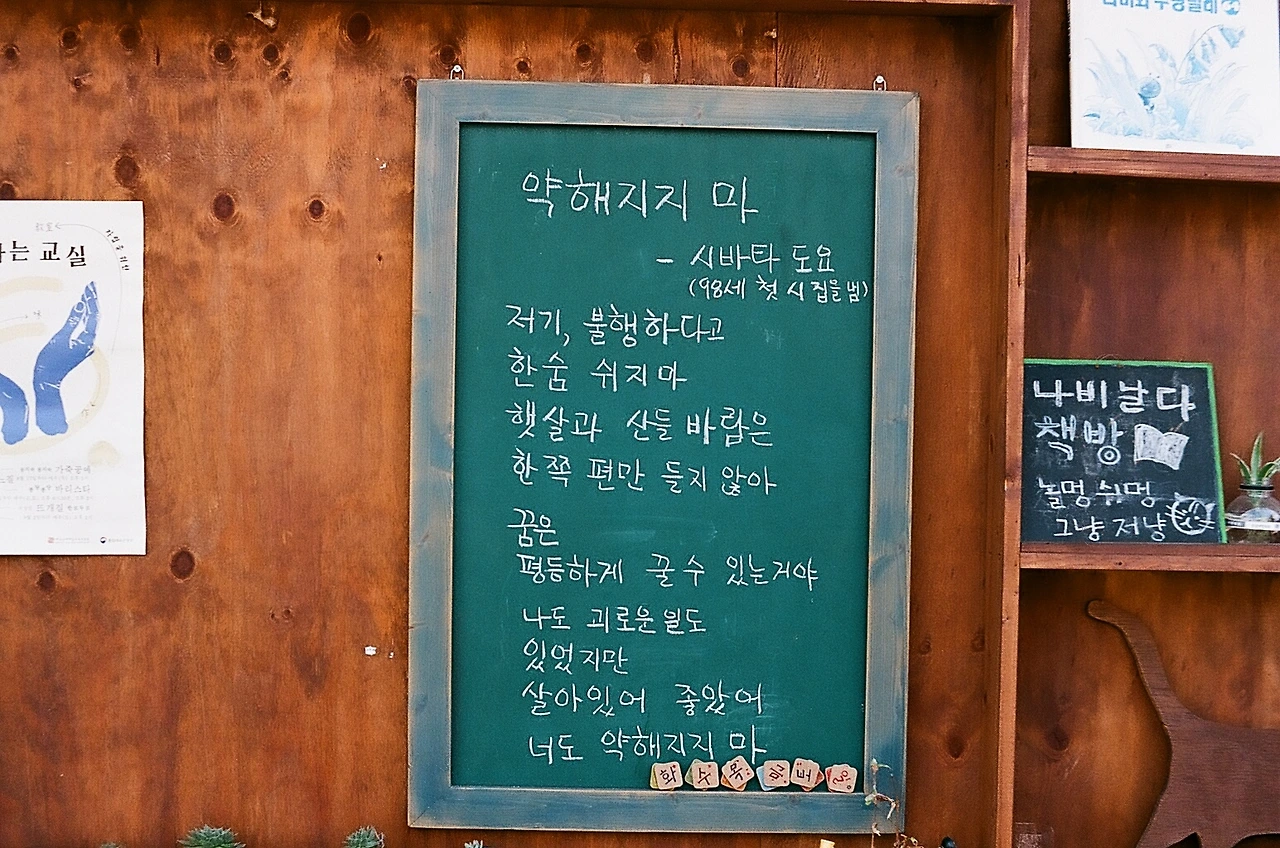 약해지지 마
- 시바타 도요
(98세 첫 시집을 냄)
저기, 불행하다고
한숨 쉬지마
햇살과 산들 바람은
한쪽 편만 들지 않아
꿈은
평등하게 꿀 수 있는거야
나도 괴로운 일도
있었지만
살아있어 좋았어
너도 약해지지 마
화 수 목 금 토 일
는 교실
가죽공예
바리스타
뜨개질
나비날다
책방
놀멍 쉬멍
그냥 저냥